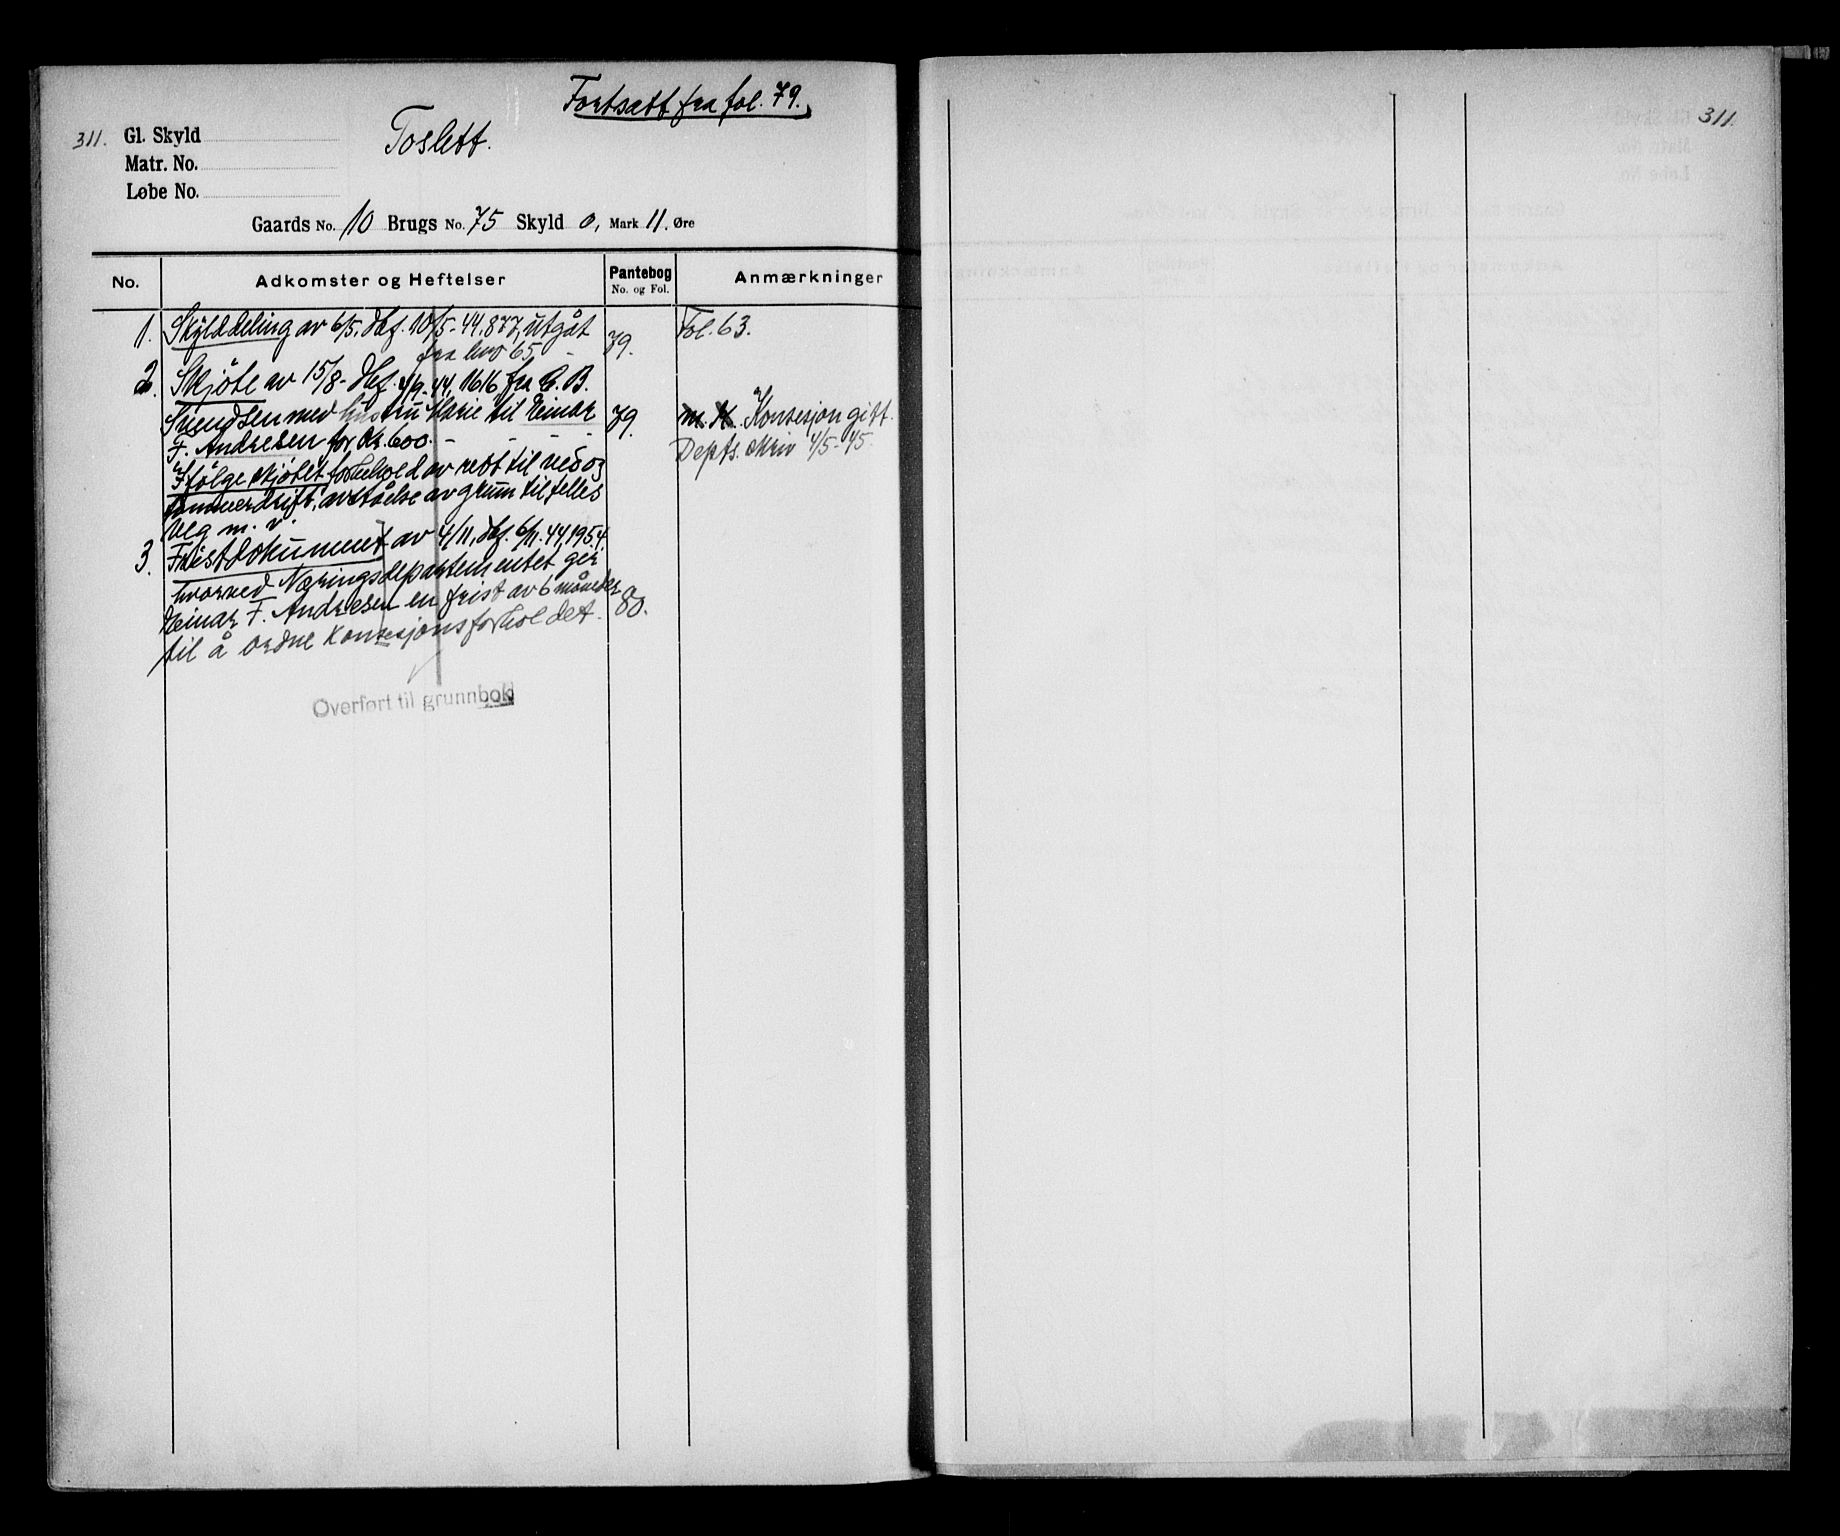 Fortsatt fra fol. 79.
311. Gl. Skyld
Toslett.
Matr. No.
Løbe No.
Gaards No. 10 Brugs No. 75 Skyld 0, Mark 11. Øre
No. Adkomster og Heftelser Pantebog No. og Fol. Anmærkninger
1. Skylddeling av 6/5, tlf. 10/5-44, 877, utgåt 79. Fol. 63.
fra bno 65
2. Skjøte av 15/8- tlf. 4/9-44, 1616 fra C. B.
Svendsen med hustru Marie til Einar 79. m. H. Konsesjon gitt.
F. Andresen for kr. 600.- - - - Depts. skriv 4/5-45.
Ifølge skjøtet forbehold av rett til ved og
tømmerdrift, avståelse av grunn til felles
veg m. v.
3. Fristdokument av 4/11, tlf. 6/11.44, 1954,
hvorved Næringsdepartementet gir
Einar F. Andresen en frist av 6 måneder 80.
til å ordne konsesjonsforholdet.
Overført til grunnbok
311.